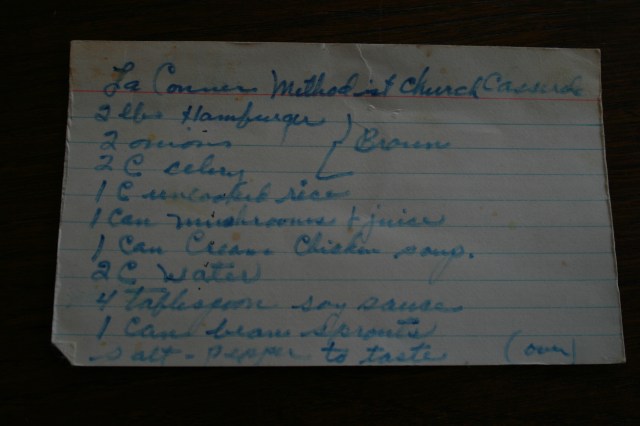 La Conner Methodist Church Casserole
2 lbs Hamburger
2 onions } Brown
2 C celery
1 C uncooked rice
1 Can mushrooms & juice
1 Can Cream Chicken soup.
2 C Water
4 tablespoon soy sauce
1 Can bean sprouts
salt - pepper to taste (over)